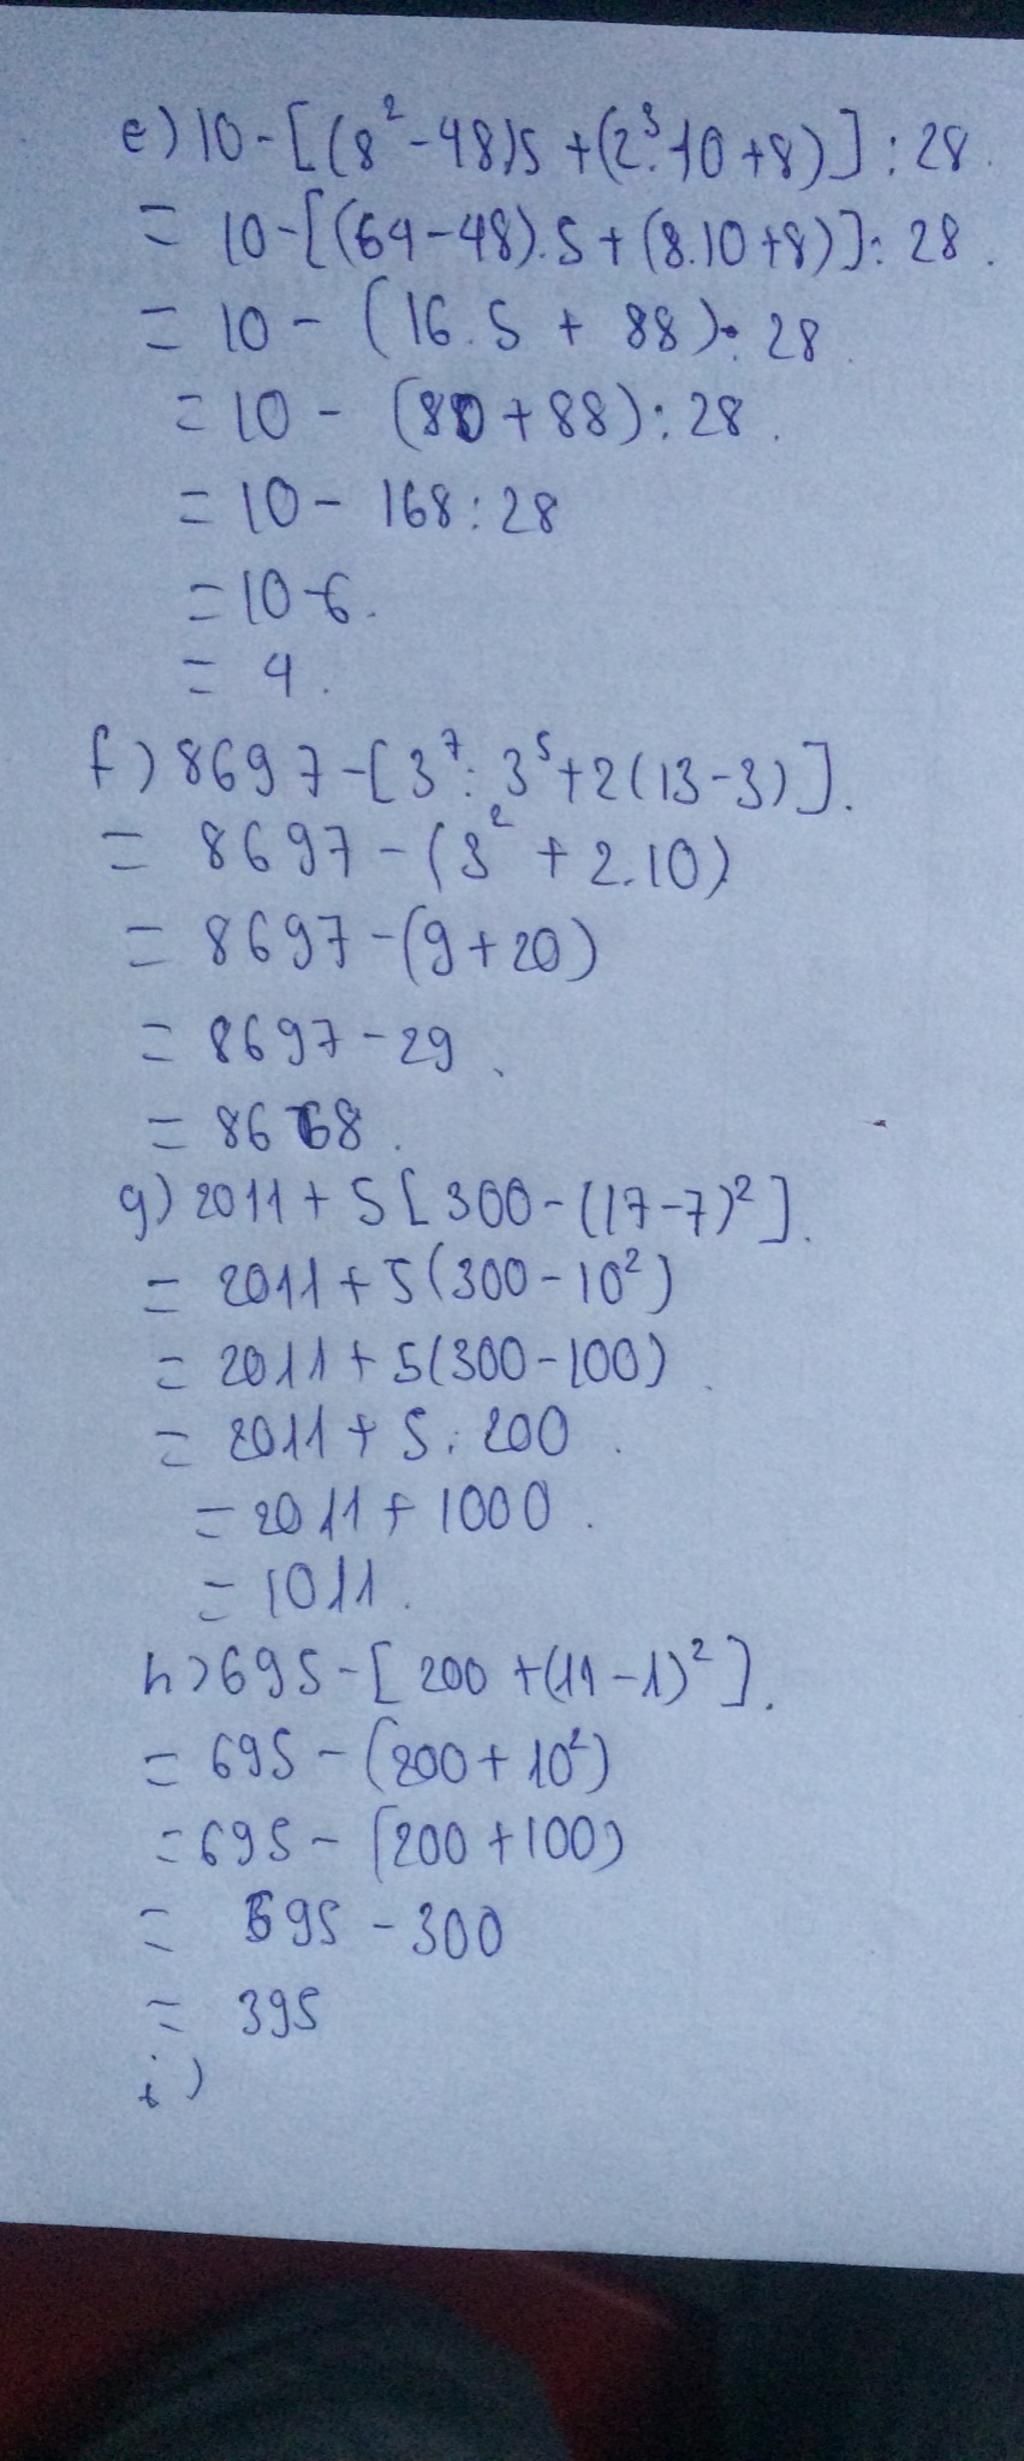 e) 10 - [(8² - 48)5 + (2³.10 + 8)] : 28.
= 10 - [(64 - 48).5 + (8.10 + 8)] : 28.
= 10 - (16.5 + 88) : 28.
= 10 - (80 + 88) : 28.
= 10 - 168 : 28
= 10 - 6.
= 4.
f) 8697 - [3⁷ : 3⁵ + 2(13 - 3)].
= 8697 - (3² + 2.10)
= 8697 - (9 + 20)
= 8697 - 29.
= 8668.
g) 2011 + 5[300 - (17 - 7)²].
= 2011 + 5(300 - 10²)
= 2011 + 5(300 - 100).
= 2011 + 5.200.
= 2011 + 1000.
= 1011.
h) 695 - [200 + (11 - 1)²].
= 695 - (200 + 10²)
= 695 - (200 + 100)
= 695 - 300
= 395
i)